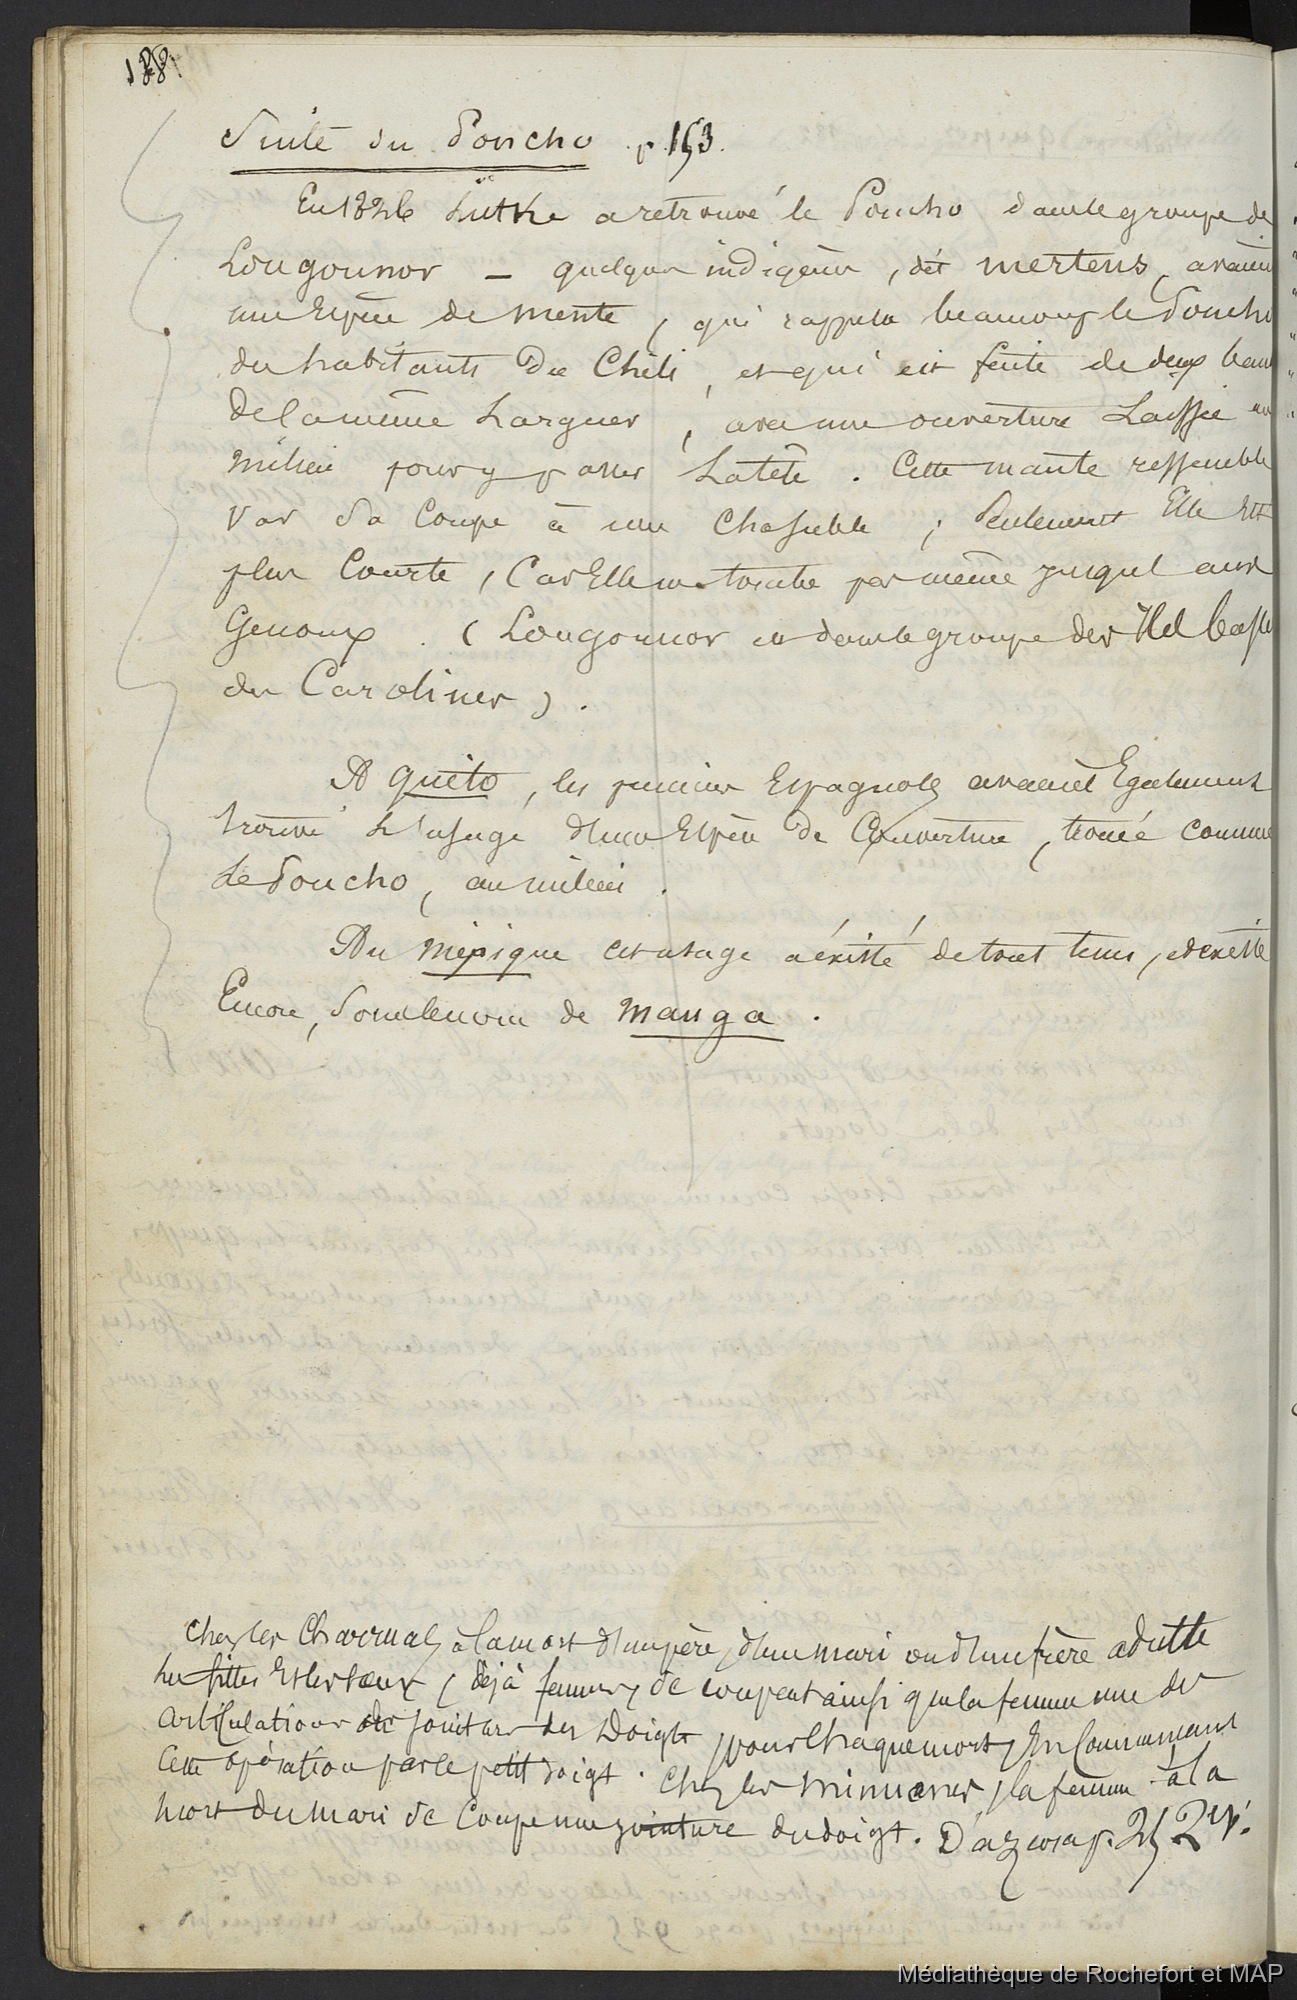 188
Suite du Poncho p. 153.
En 1826 Lütke a retrouvé le Poncho dans le groupe de
Lougounor — quelques indigènes, dit mertens, avaient
une Espèce de mente, qui rappela beaucoup le Poncho
des habitants du Chili, et qui est faite de deux ban
de la même Largeur, avec une ouverture Laissée au
milieu pour y passer La tête. Cette mante ressemble
par sa Coupe à une Chasuble; seulement Elle Est
plus Courte, Car Elle ne tombe pas même jusqu'aux
Genoux. (Lougounor est dans le groupe des Iles basses
des Carolines).
A quito, les premiers Espagnols avaient Egalement
trouvé L'usage d'une Espèce de Couverture, trouée comme
Le Poncho, au milieu.
Au méxique cet usage a éxisté de tout tems, et existe
Encore, sous le nom de manga.
chez les Charruas, à la mort d'un père, d'un mari ou d'un frère adulte
Les filles Et les sœurs (déjà femmes, se coupent ainsi que la femme une des
articulations des jointures des Doigts pour chaque mort, En Commençant
Cette opération par le petit doigt. Chez les Minuanes, la femme à la
mort du mari se Coupe une jointure du doigt. D'azara p. 25 2
Médiathèque de Rochefort et MAP